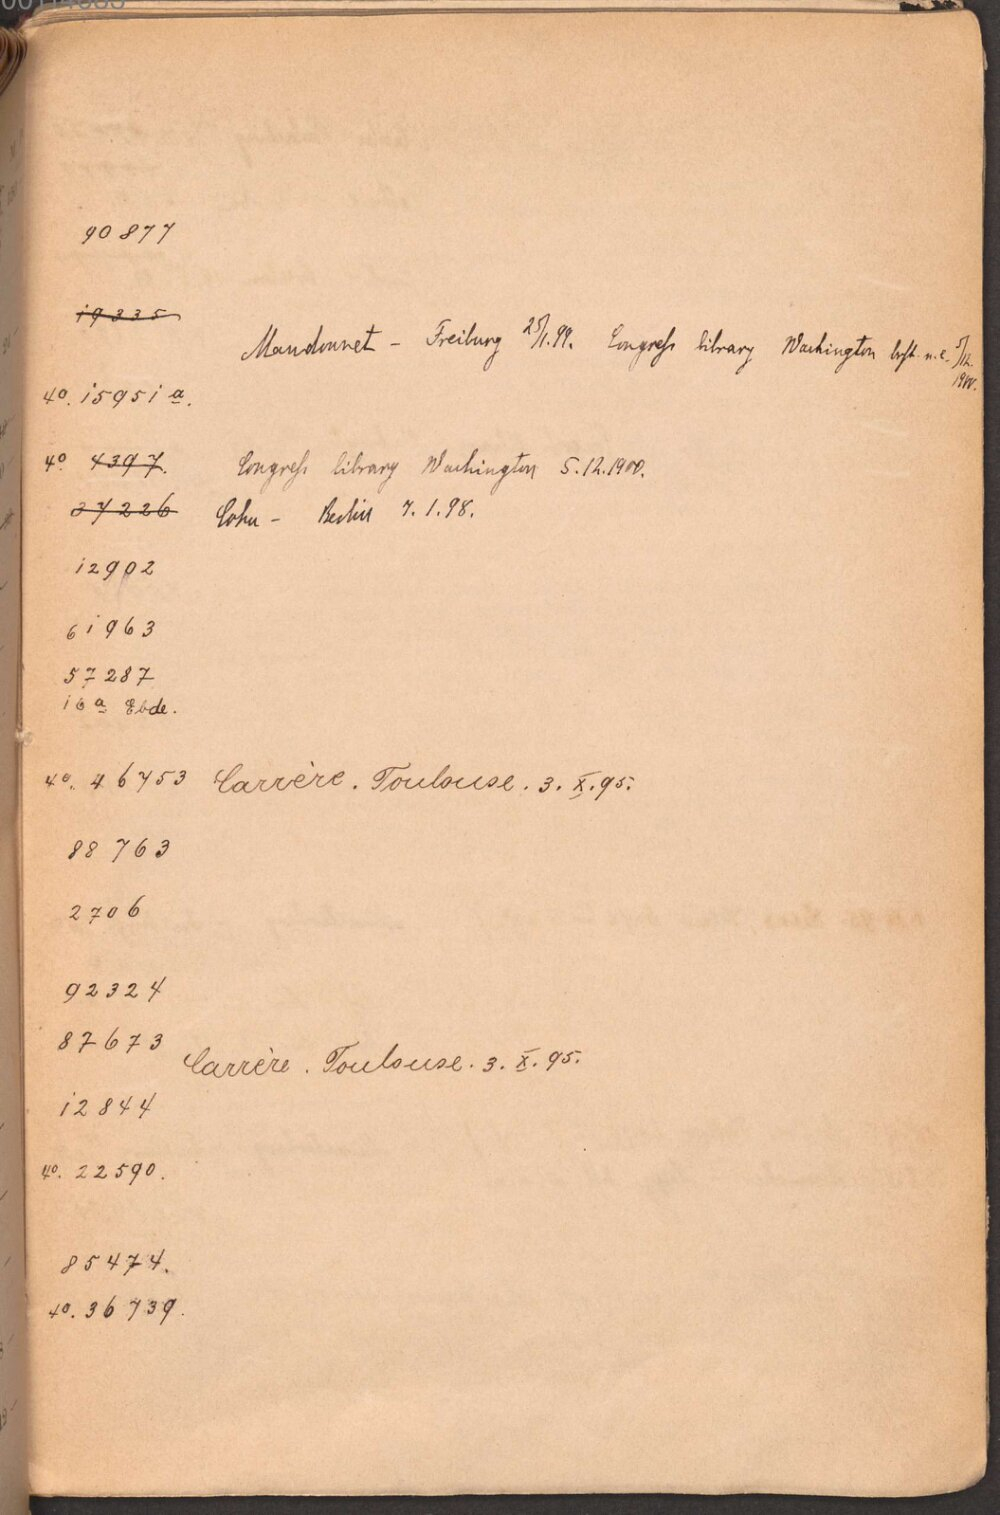 90877
19335
Mandonnet - Freiburg 25/1.99. Congreß library Washington 5/12. 1900.
40. 15951 a.
40 4397. Congreß library Washington 5.12.1900.
37226 Cohn - Berlin 7.1.98.
12902
61963
57287
16 a Ebde.
40. 46753 Carrère. Toulouse. 3. X. 95.
88763
2706
92324
87673
Carrère. Toulouse. 3. X. 95.
12844
40. 22590.
85474.
40. 36739.